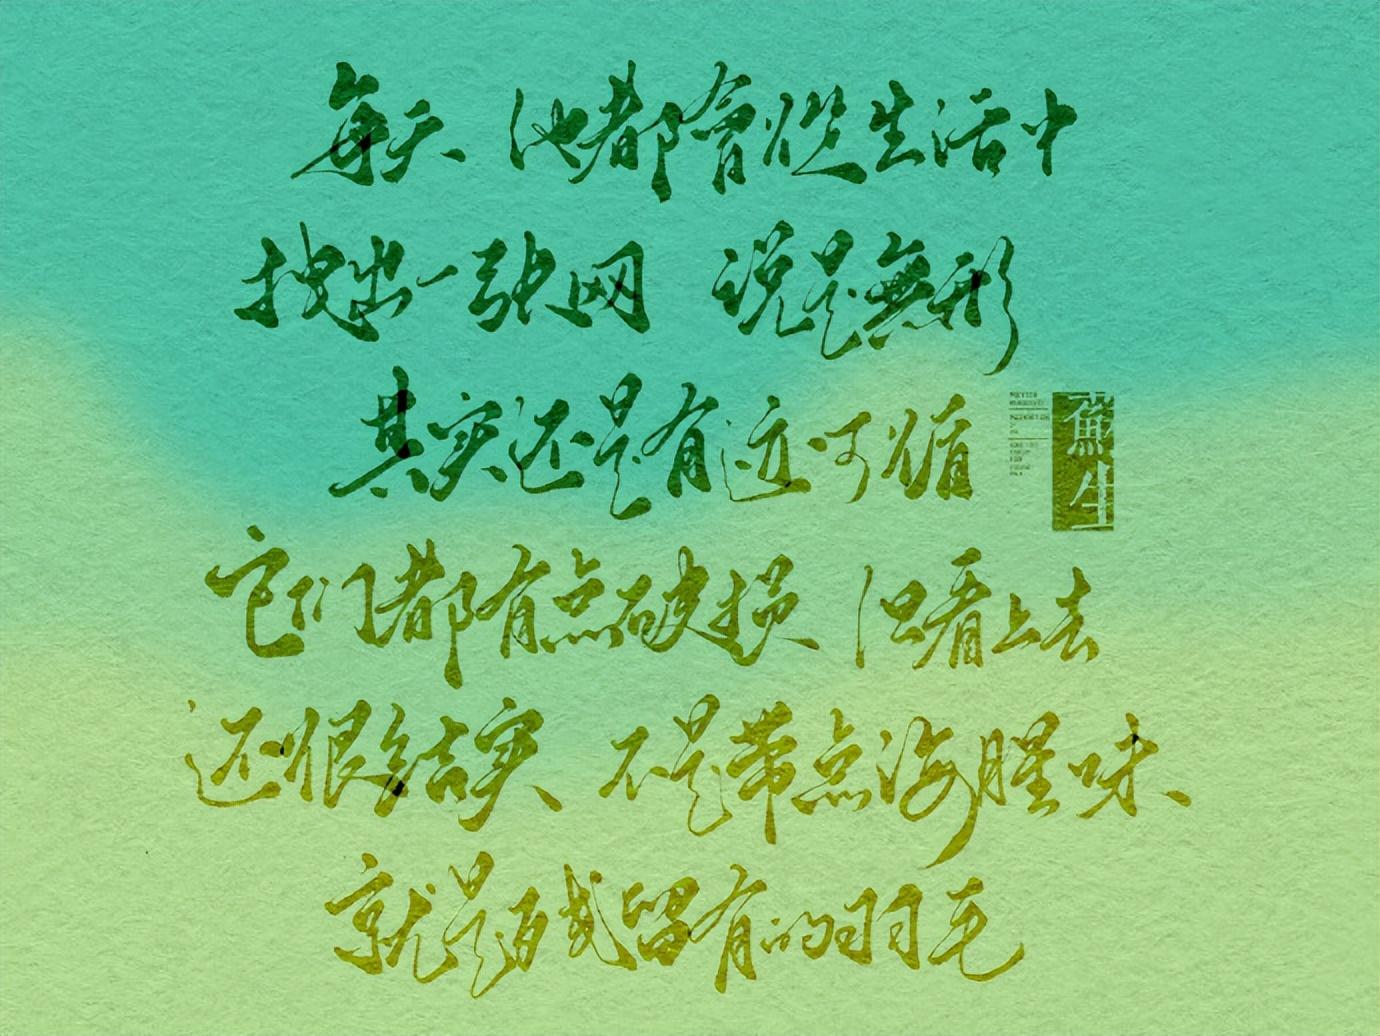 每天 他都會從生活中
拽出一张网 说是無形
其实还是有迹可循
它们都有点破损 但看上去
还很结实 不是带点海腥味
就是残留有的羽毛
蘇生